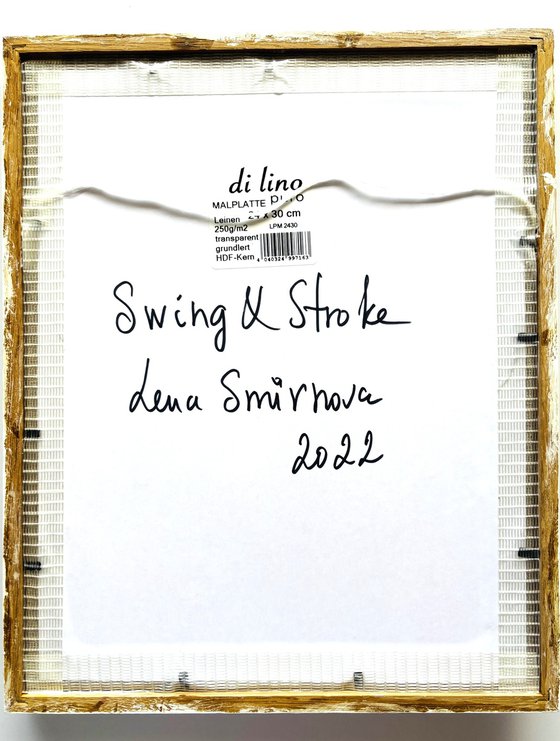 di lino
MALPLATTE puro
Leinen 24 x 30 cm
250g/m2 LPM 2430
transparent
grundiert
HDF-Kern 4 040324 997163
Swing & Stroke
Lena Smirnova
2022